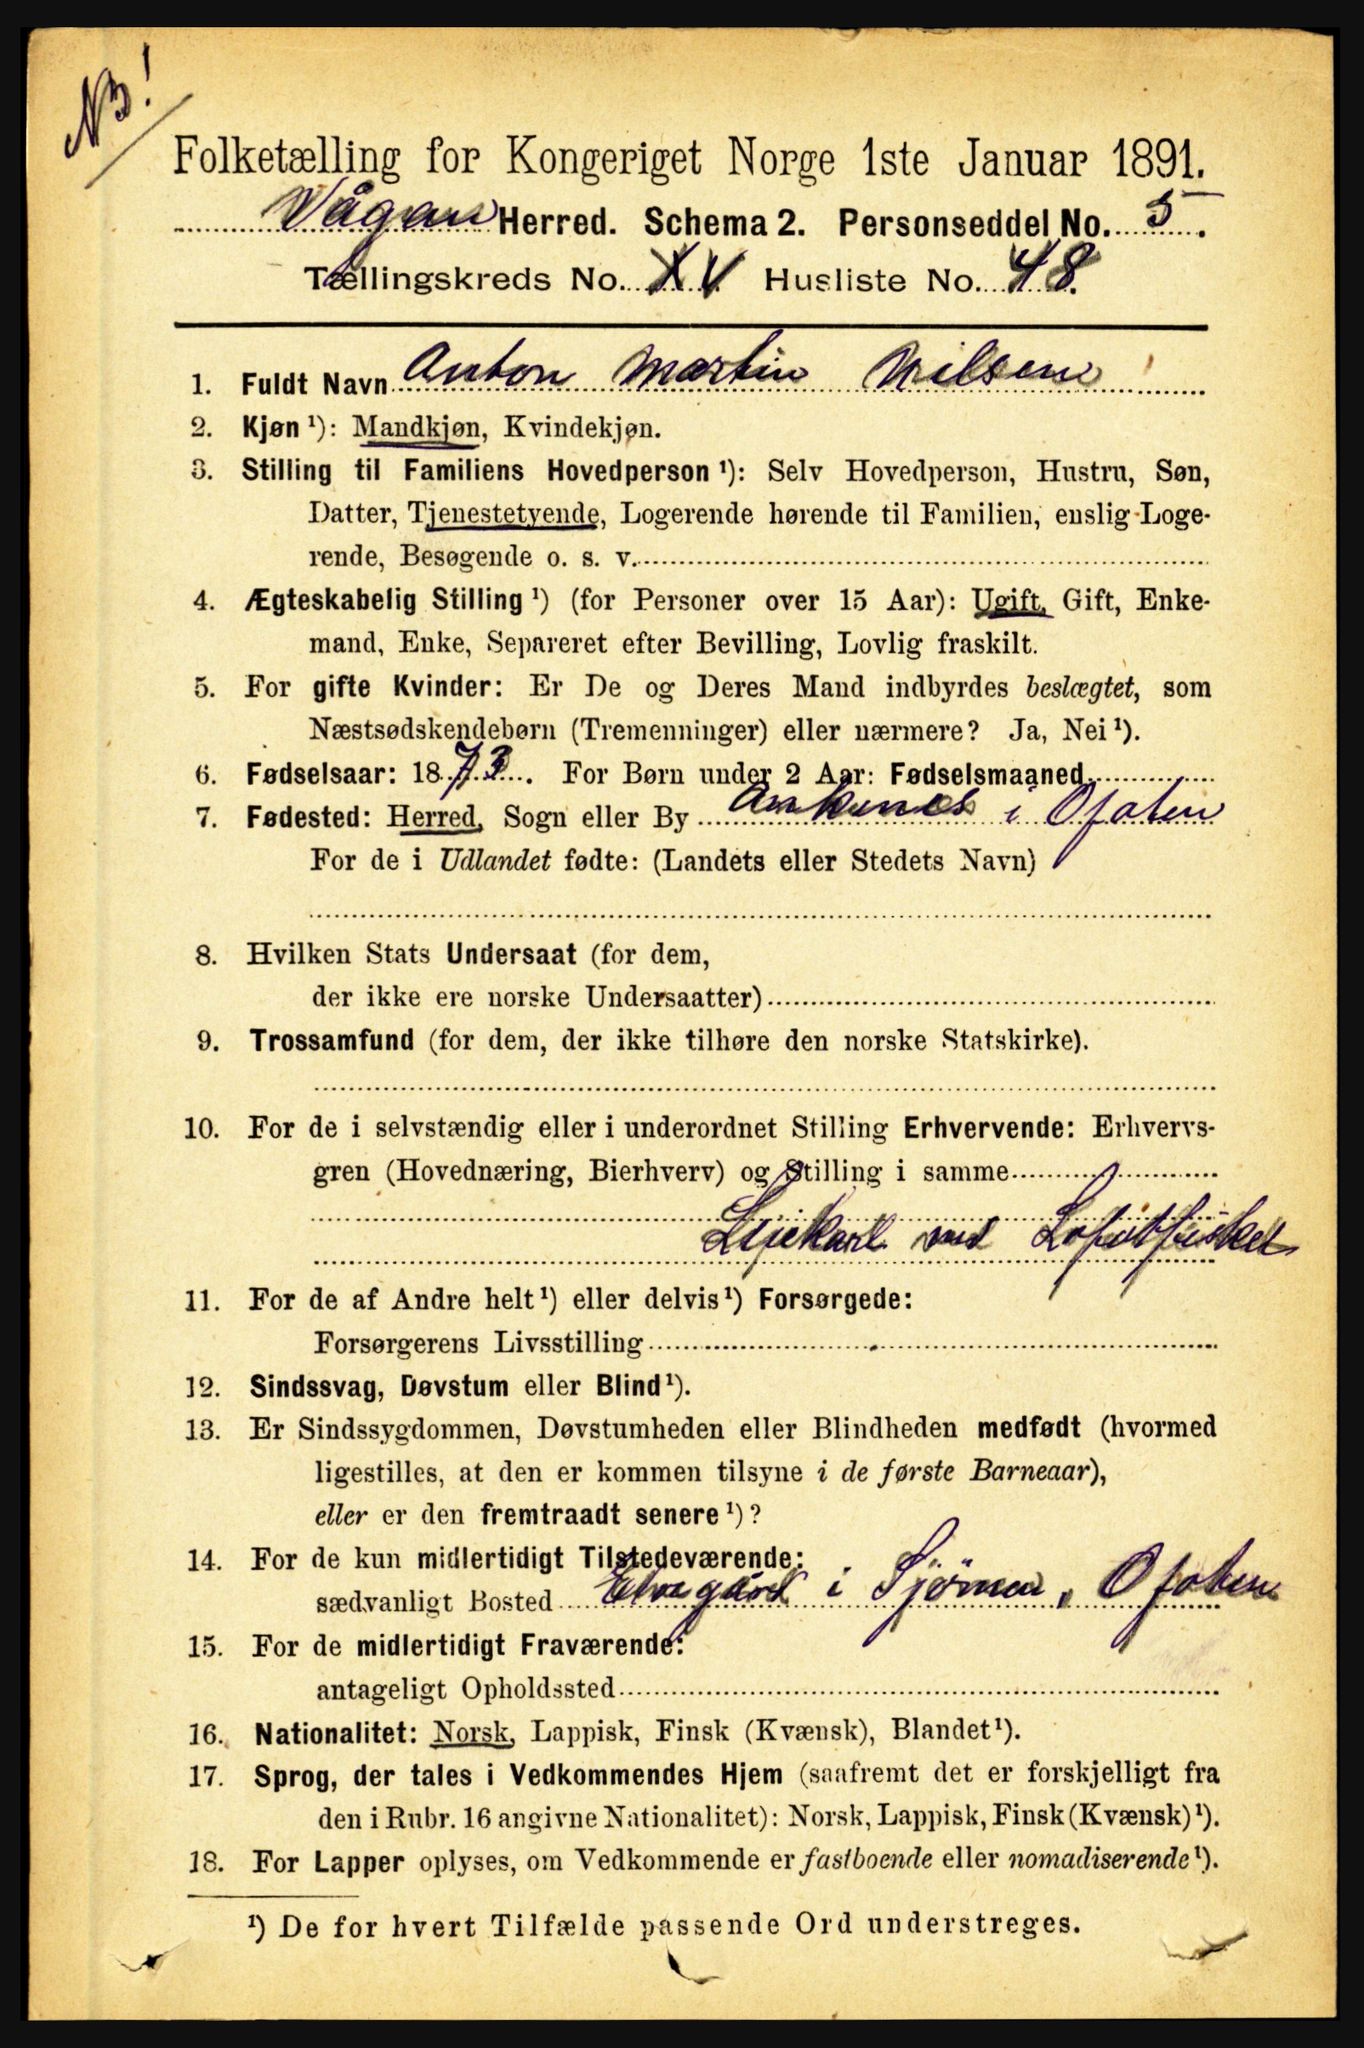 NB!
Folketælling for Kongeriget Norge 1ste Januar 1891.
Vågan Herred. Schema 2. Personseddel No. 5.
Tællingskreds No. XV Husliste No. 48.
1. Fuldt Navn Anton Martin Nilsen
2. Kjøn¹): Mandkjøn, Kvindekjøn.
3. Stilling til Familiens Hovedperson¹): Selv Hovedperson, Hustru, Søn,
Datter, Tjenestetyende, Logerende hørende til Familien, enslig Loge-
rende, Besøgende o. s. v.
4. Ægteskabelig Stilling¹) (for Personer over 15 Aar): Ugift, Gift, Enke-
mand, Enke, Separeret efter Bevilling, Lovlig fraskilt.
5. For gifte Kvinder: Er De og Deres Mand indbyrdes beslægtet, som
Næstsødskendebørn (Tremenninger) eller nærmere? Ja, Nei¹).
6. Fødselsaar: 1873. For Børn under 2 Aar: Fødselsmaaned
7. Fødested: Herred, Sogn eller By Ankenes i Ofoten
For de i Udlandet fødte: (Landets eller Stedets Navn)
8. Hvilken Stats Undersaat (for dem,
der ikke ere norske Undersaatter)
9. Trossamfund (for dem, der ikke tilhøre den norske Statskirke).
10. For de i selvstændig eller i underordnet Stilling Erhvervende: Erhvervs-
gren (Hovednæring, Bierhverv) og Stilling i samme
Lejekarl ved Lofotfisket
11. For de af Andre helt¹) eller delvis¹) Forsørgede:
Forsørgerens Livsstilling
12. Sindssvag, Døvstum eller Blind¹).
13. Er Sindssygdommen, Døvstumheden eller Blindheden medfødt (hvormed
ligestilles, at den er kommen tilsyne i de første Barneaar),
eller er den fremtraadt senere¹)?
14. For de kun midlertidigt Tilstedeværende:
sædvanligt Bosted Elvegård i Sjømen, Ofoten
15. For de midlertidigt Fraværende:
antageligt Opholdssted
16. Nationalitet: Norsk, Lappisk, Finsk (Kvænsk), Blandet¹).
17. Sprog, der tales i Vedkommendes Hjem (saafremt det er forskjelligt fra
den i Rubr. 16 angivne Nationalitet): Norsk, Lappisk, Finsk (Kvænsk)¹).
18. For Lapper oplyses, om Vedkommende er fastboende eller nomadiserende¹).
¹) De for hvert Tilfælde passende Ord understreges.